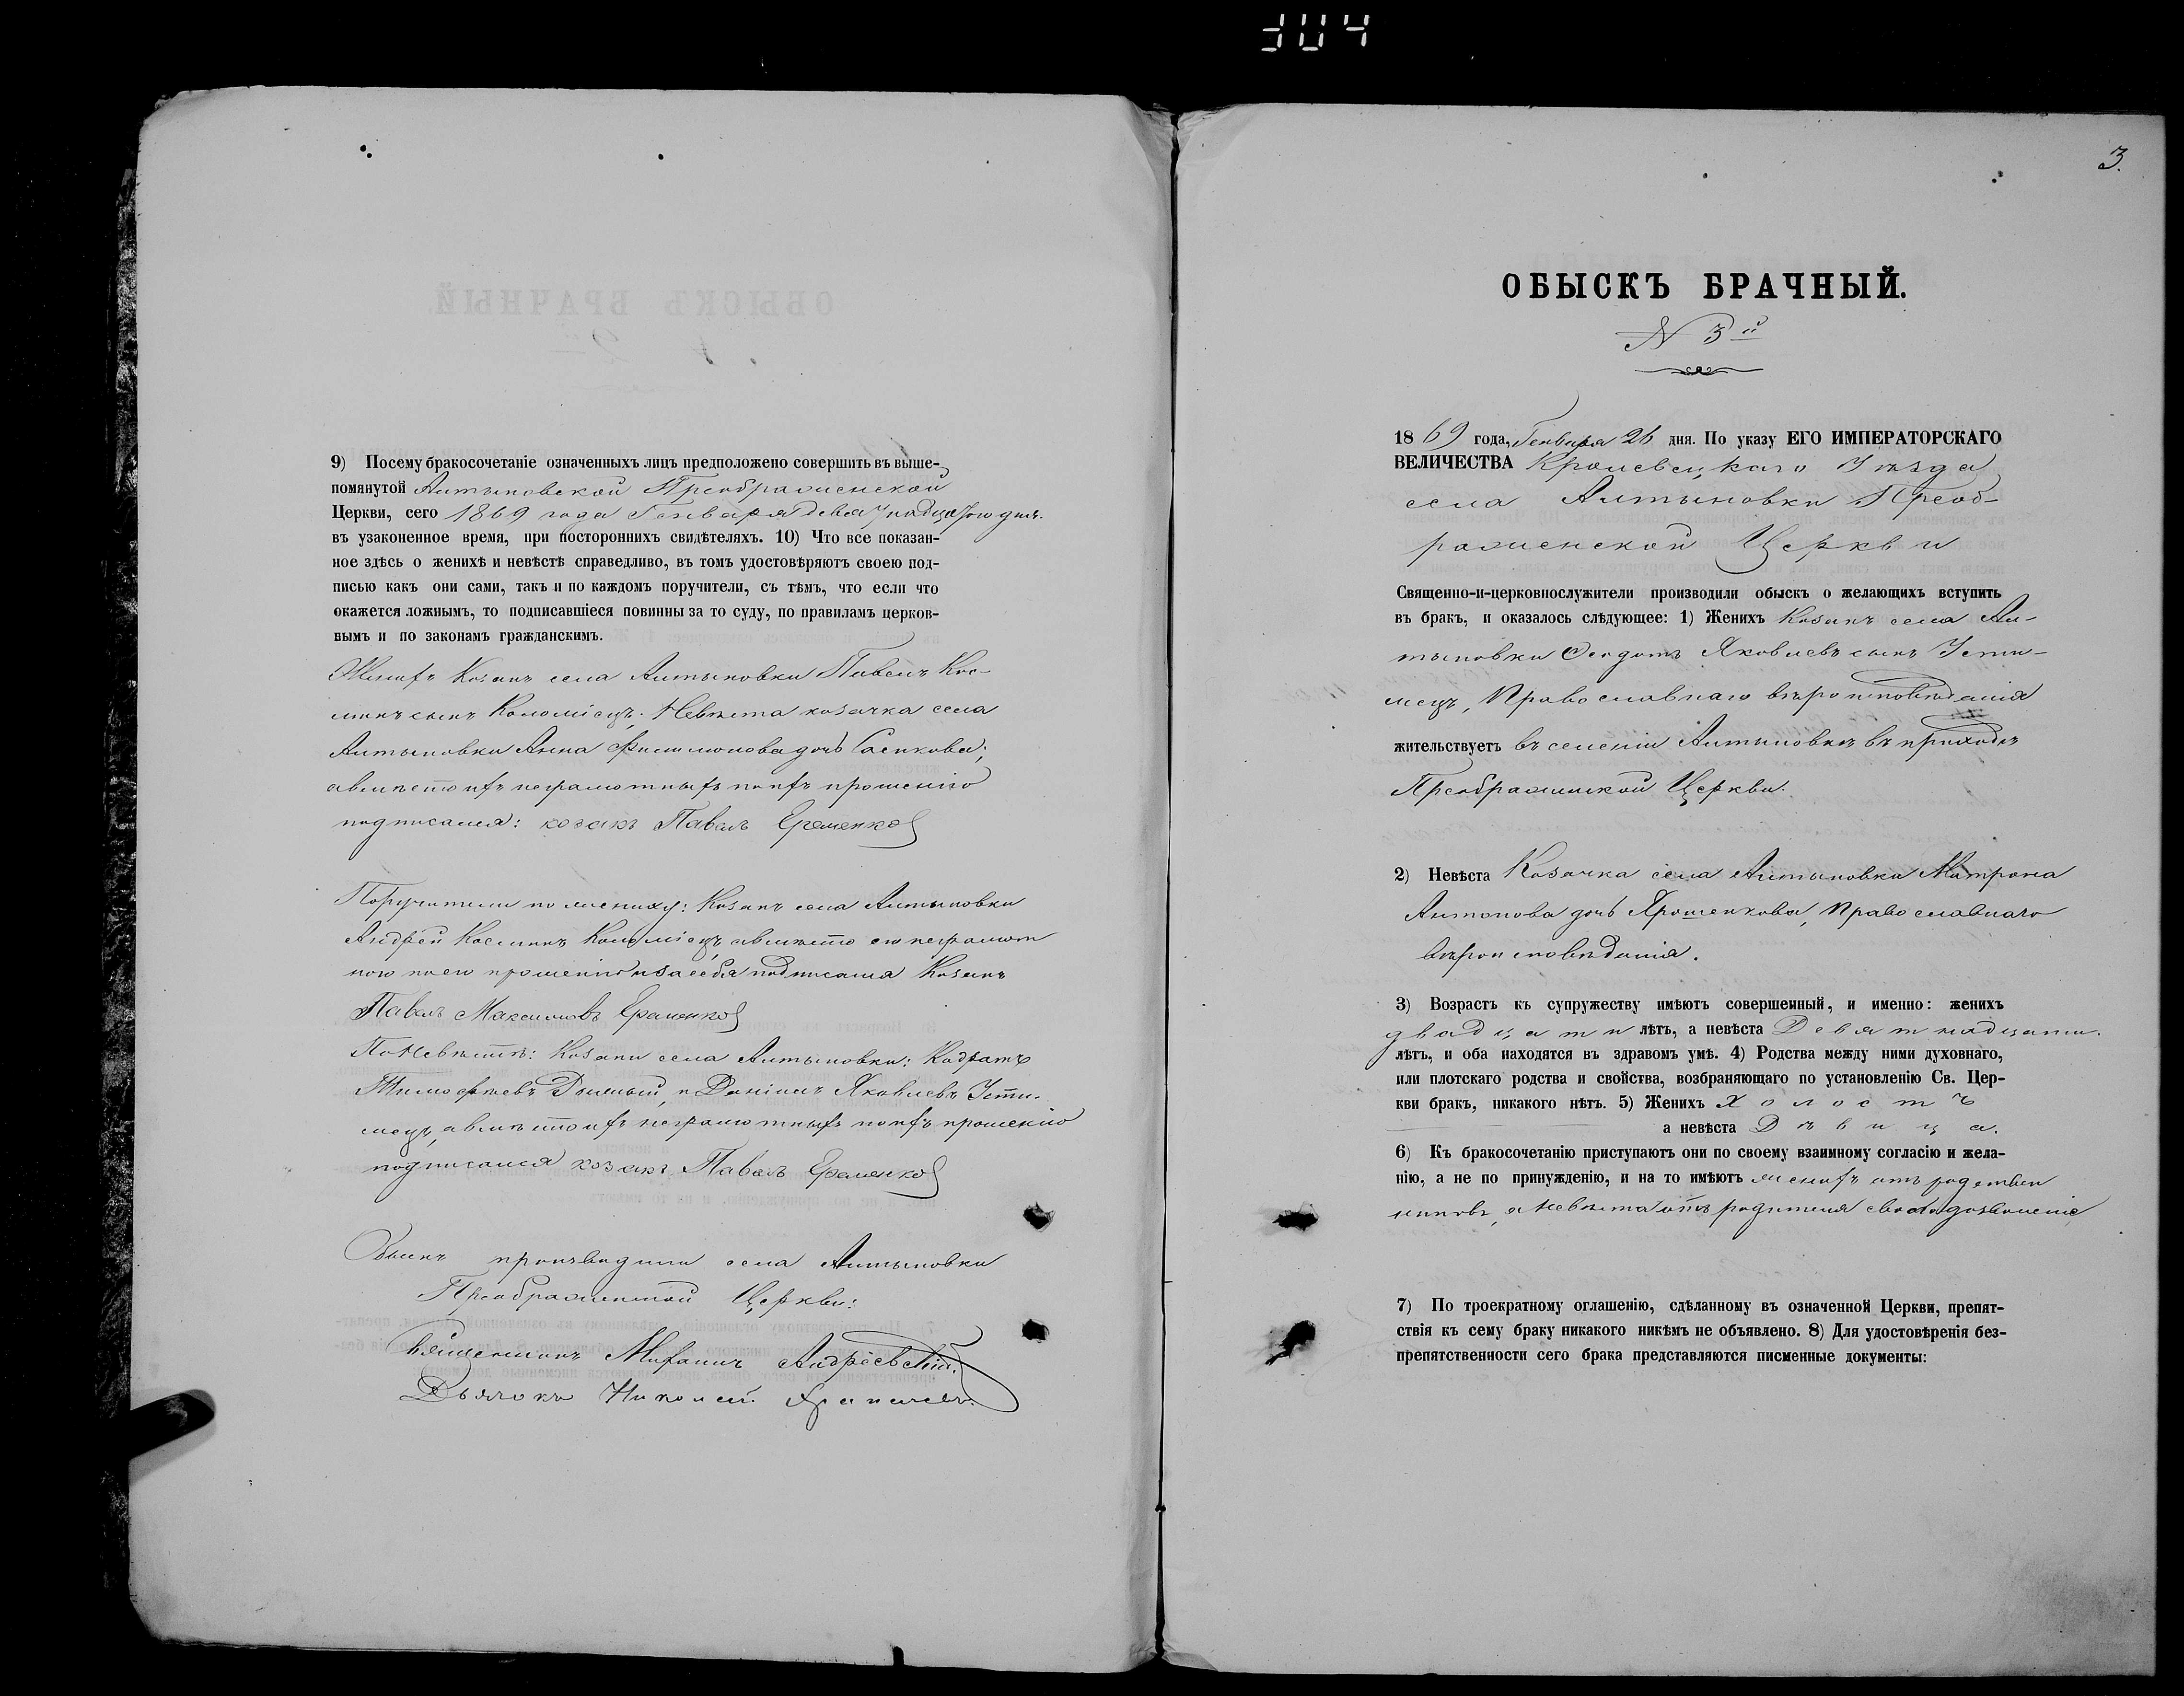 304
9) Посему бракосочетаніе означенныхъ лицъ предположено совершить въ выше-
помянутой Алтыновской Преображенской
Церкви, сего 1869 года Генваря девятнадцатого дня.
въ узаконенное время, при постороннихъ свидѣтеляхъ. 10) Что все показан-
ное здѣсь о женихѣ и невѣстѣ справедливо, въ томъ удостовѣряютъ своею под-
писью какъ они сами, такъ и по каждомъ поручители, съ тѣмъ, что если что
окажется ложнымъ, то подписавшіеся повинны за то суду, по правиламъ церков-
нымъ и по законамъ гражданскимъ.
Женихъ Козакъ села Алтыновки Павелъ Кос-
минъ сынъ Коломіецъ. Невѣста козачка села
Алтыновки Анна Филимонова дочь
а вмѣсто ихъ неграмотныхъ по ихъ прошенію
подписался: козакъ Павелъ Еременко
Поручители по жениху: Козакъ села Алтыновки
Андрей Косминъ Коломіецъ, а вмѣсто его неграмот
ного по его прошенію и за себя подписался Козакъ
Павелъ Максимовъ Еременко
По Невѣстѣ: Козаки села Алтыновки: Кодратъ
Тимофѣевъ и Даніилъ Яковлевъ Усти-
мецъ, а вмѣсто ихъ неграмотныхъ по ихъ прошенію
подписался козакъ Павелъ Еременко
Обыскъ производили села Алтыновки
Преображенской Церкви:
Священникъ Михаилъ Андріевскій
Дьячокъ Николай
3.
ОБЫСКЪ БРАЧНЫЙ.
N 3й
1869 года, Генваря 26 дня. По указу ЕГО ИМПЕРАТОРСКАГО
ВЕЛИЧЕСТВА Кролевецкаго Уѣзда
села Алтыновки Преоб-
раженской Церкви
Священно-и-церковнослужители производили обыскъ о желающихъ вступить
въ бракъ, и оказалось слѣдующее: 1) Женихъ Козакъ села Ал-
тыновки Феодотъ Яковлевъ сынъ Усти-
мецъ, Православнаго вѣроисповѣданія
жительствуетъ въ селеніи Алтыновкѣ въ приходѣ
Преображенской Церкви.
2) Невѣста Козачка села Алтыновки Матрона
Антонова дочь Ярошенкова, Православнаго
вѣроисповѣданія.
3) Возрастъ къ супружеству имѣютъ совершенный, и именно: женихъ
двадцати лѣтъ, а невѣста Девятнадцати.
лѣтъ, и оба находятся въ здравомъ умѣ. 4) Родства между ними духовнаго,
или плотскаго родства и свойства, возбраняющаго по установленію Св. Цер-
кви бракъ, никакого нѣтъ. 5) Женихъ Холостъ
а невѣста Дѣвица.
6) Къ бракосочетанію приступаютъ они по своему взаимному согласію и жела-
нію, а не по принужденію, и на то имѣютъ женихъ отъ родствен
никовъ, а Невѣста отъ родителя своего дозволеніе
7) По троекратному оглашенію, сдѣланному въ означенной Церкви, препят-
ствія къ сему браку никакого никѣмъ не объявлено. 8) Для удостовѣренія без-
препятственности сего брака представляются писменные документы: